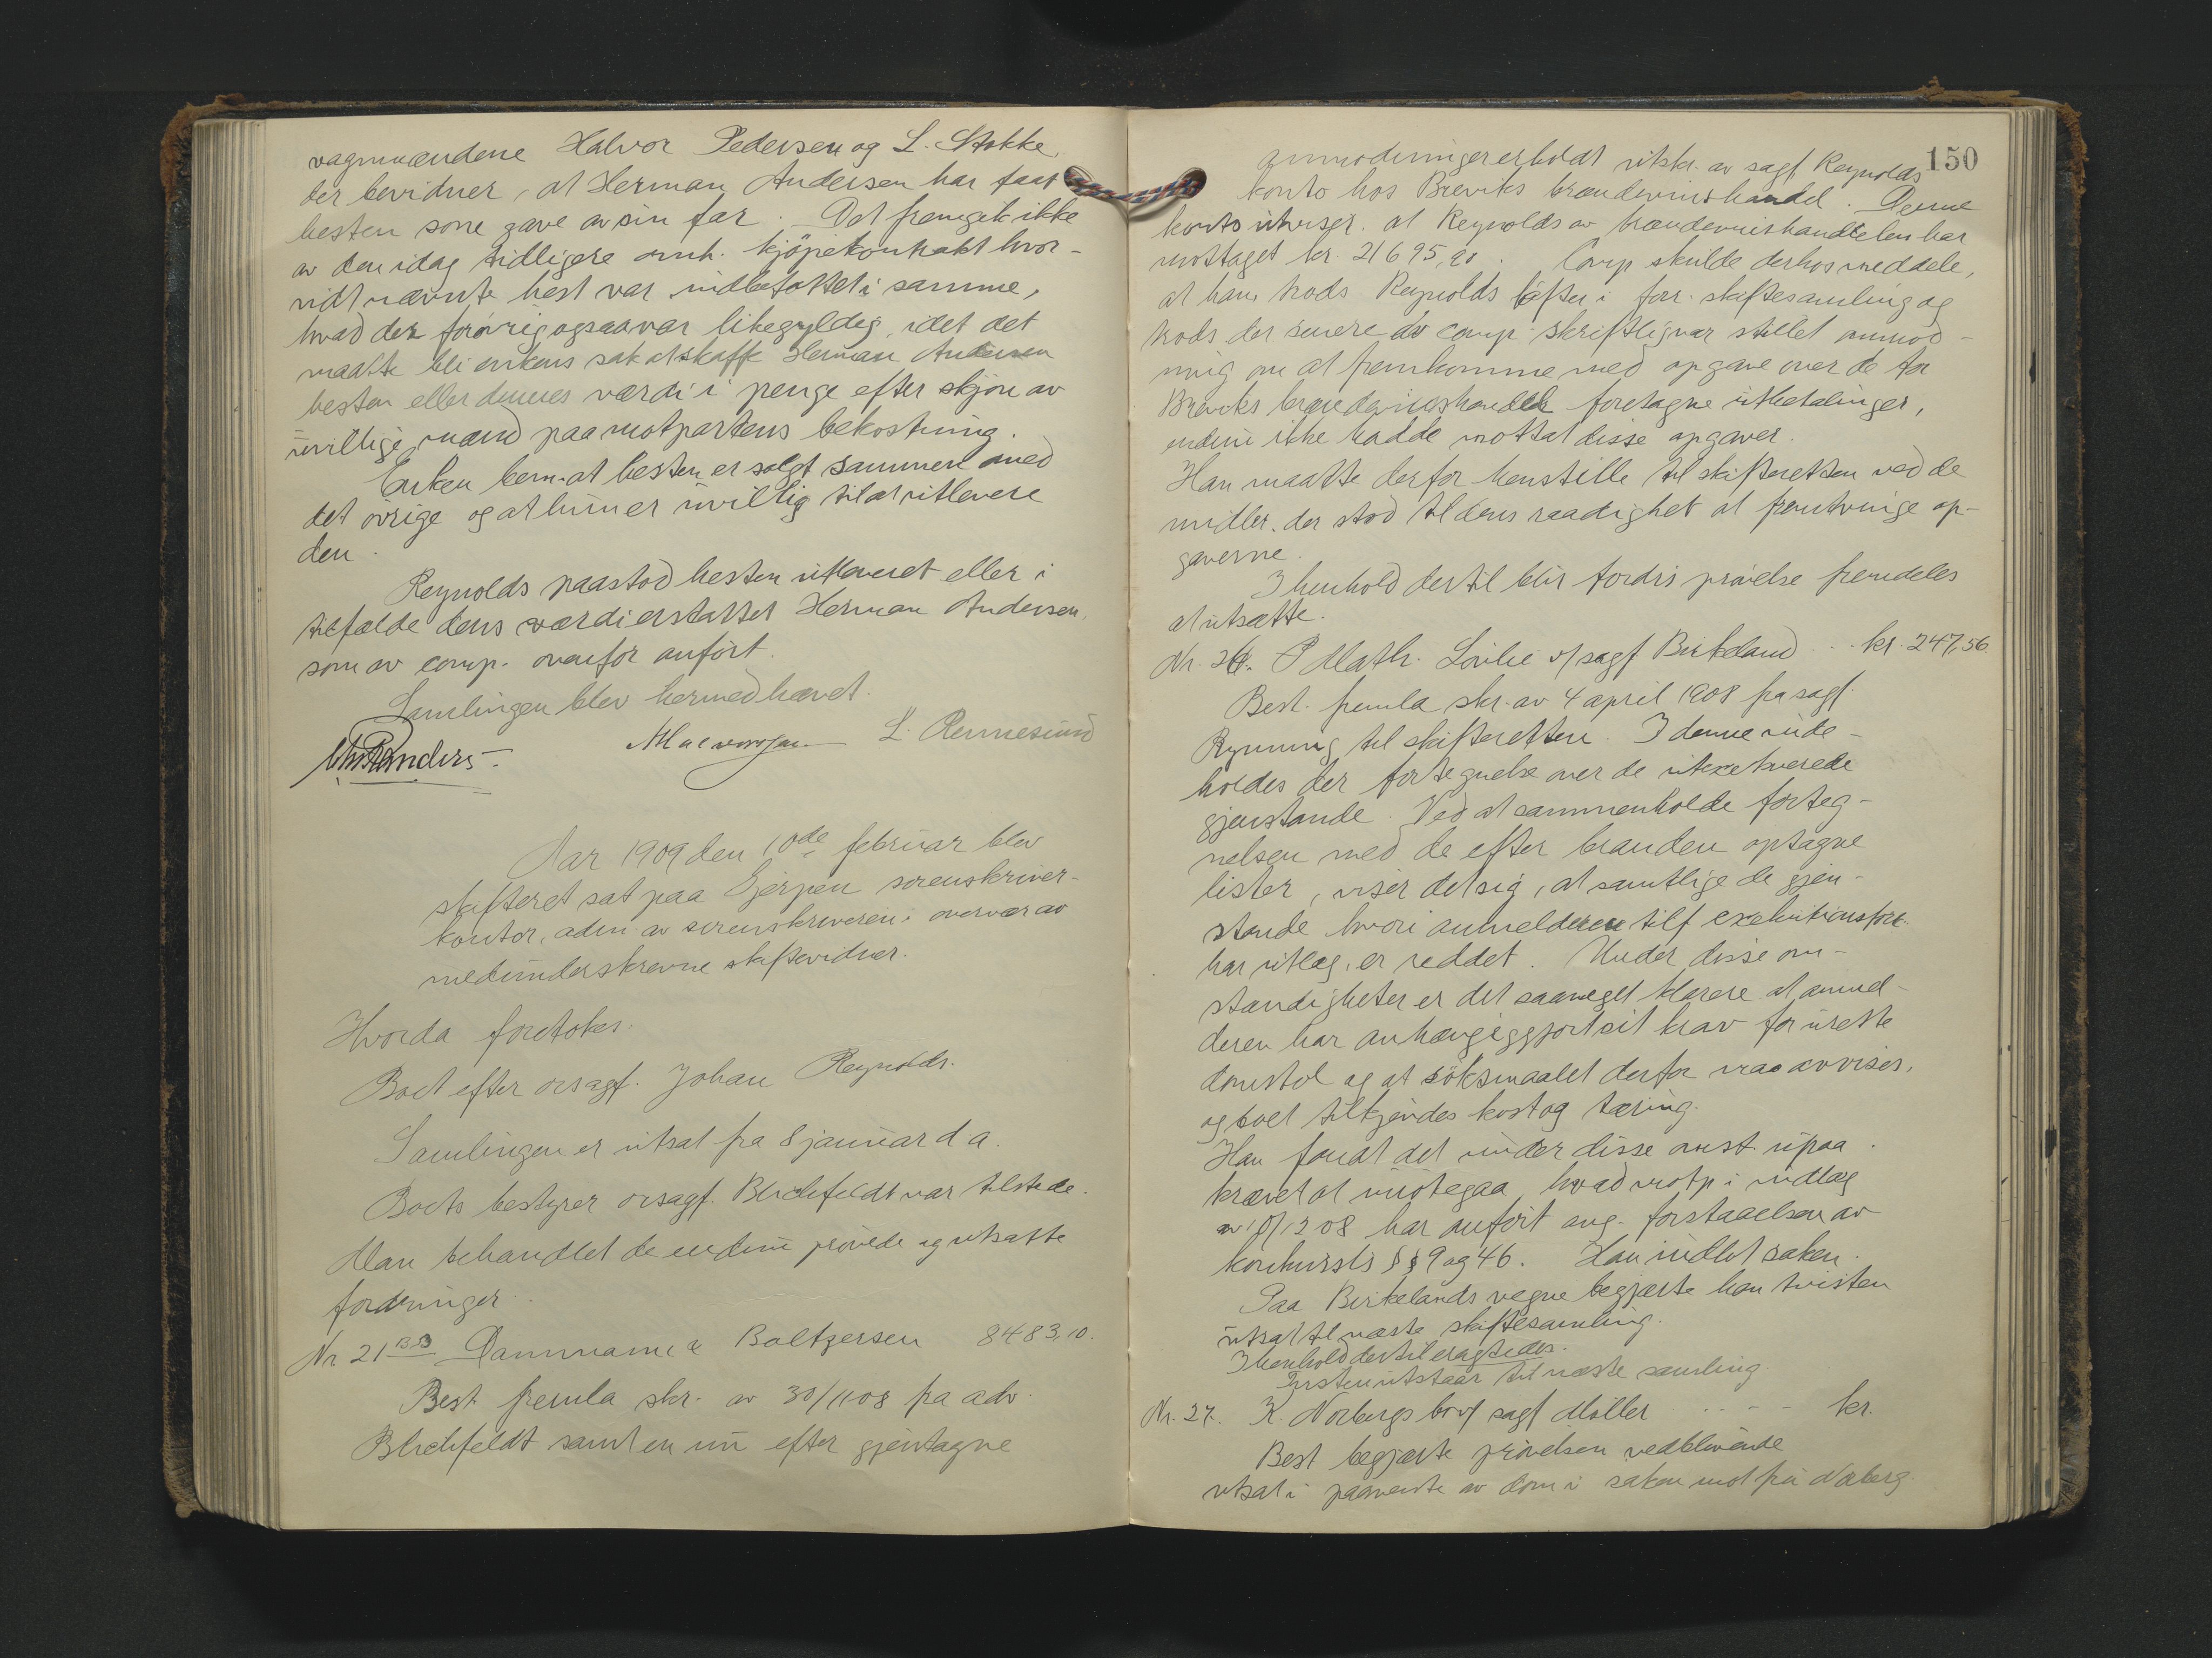 vagnmændene Halvor Pedersen og L. Stokke
der bevidner, at Herman Andersen har faat
hesten som gave av sin far. Det fremgik ikke
av den idag tidligere omh. kjöpekontrakt hvor-
vidt nævnte hest var indbefattet i samme,
hvad der forövrig ogsaa var likegyldig, idet det
maatte bli enkens sak at skaffe Herman Andersen
hesten eller dennes værdi i penge efter skjön av
uvillige mænd paa motpartens bekostning.
Enken bem. at hesten er solgt sammen med
det övrige og at hun er uvillig til at utlevere
den.
Reynolds paastod hesten utleveret eller i
tilfælde dens værdi erstattet Herman Andersen,
som av comp. ovenfor anfört.
Samlingen blev hermed hævet.
L. Rennesund
Aar 1909 den 10de februar blev
skifteret sat paa Gjerpen sorenskriver-
kontor, adm. av sorenskriveren i overvær av
medunderskrevne skiftevidner.
Hvorda foretokes:
Boet efter orsagf. Johan Reynolds.
Samlingen er utsat fra 8 januar d a.
Boets bestyrer orsagf. Blichfeldt var tilstede.
Man behandlet de endnu prövede og utsatte
fordringer.
Nr 21 Dammann & Baltzersen 8483,10.
Best. fremla skr. av 30/11 08 fra adv.
Blichfeldt samt en nu efter gjentagne
150
anmodninger erholdt utskr. av sagf Reynolds
konto hos Breviks brændevinshandel. Denne
konto utviser, at Reynolds av brændevinshandelen har
mottaget kr. 21695,20. Comp skulde derhos meddele,
at han trods Reynolds löfte i forr. skiftesamling og
trods der senere av comp. skriftlig var stillet anmod-
ning om at fremkomme med opgave over de for
Breviks brændevinshandel foretagne utbetalinger,
endnu ikke hadde mottat disse opgaver.
Han maatte derfor henstille til skifteretten ved de
midler, der stod til dens raadighet at fremtvinge op-
gaverne.
I henhold dertil blir fordrs prövelse fremdeles
at utsætte.
Nr. 26. P Math. Lövlie v/ sagf Birkeland ... kr. 247,56
Best. fremla skr. av 4 april 1908 fra sagf.
Rynning til skifteretten. I denne inde-
holdes der fortegnelse over de utexekverede
gjenstande. Ved at sammenholde forteg-
nelsen med de efter branden optagne
lister, viser det sig, at samtlige de gjen-
stande hvori anmelderen tilf exekutionsforr.
har utlæg, er reddet. Under disse om-
standigheter er det saameget klarere at anmel-
deren har anhængiggjort sit krav for urette
domstol og at söksmaalet derfor maa avvises,
og boet tilkjendes kost og tæring.
Han fandt det under disse omst. upaa
krævet at imötegaa, hvad motp. i indlæg
av 10/12 08 har anfört ang. forstaaelsen av
konkursls §§ 9 og 46. Han indlot saken.
Paa Birkelands vegne begjærte han tvisten
utsat til næste skiftesamling.
I henhold dertil eragtedes:
Tvisten utstaar til næste samling.
Nr. 27. K. Norbergs bo v/ sagf Möller .... kr.
Best begjærte prövelsen vedblivende
utsat i paavente av dom i saken mot fru Norberg.